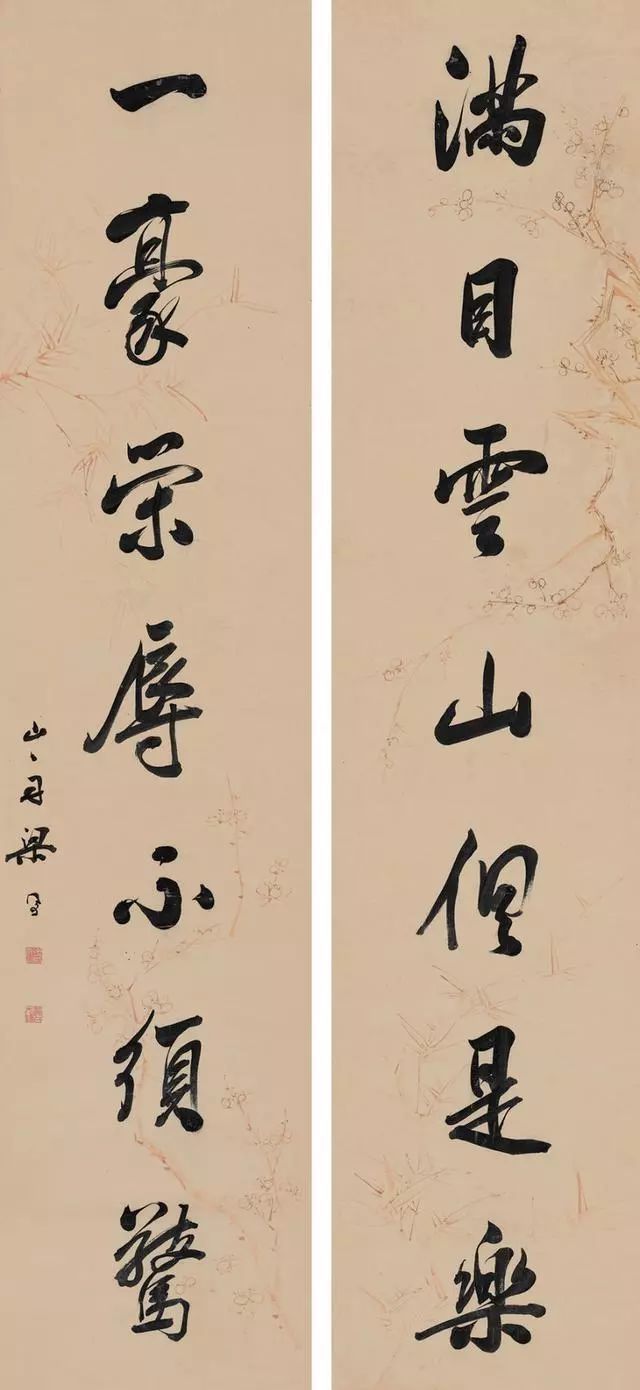 滿目雲山俱是樂
一豪榮辱不須驚
山舟梁同書